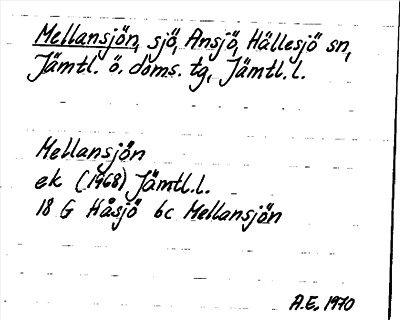 Mellansjön, sjö, Ansjö, Hällesjö sn,
Jämtl. ö. doms. tg, Jämtl.l.
Mellansjön
ek (1968) Jämtl.l.
18 G Håsjö 6c Mellansjön
A.E. 1970